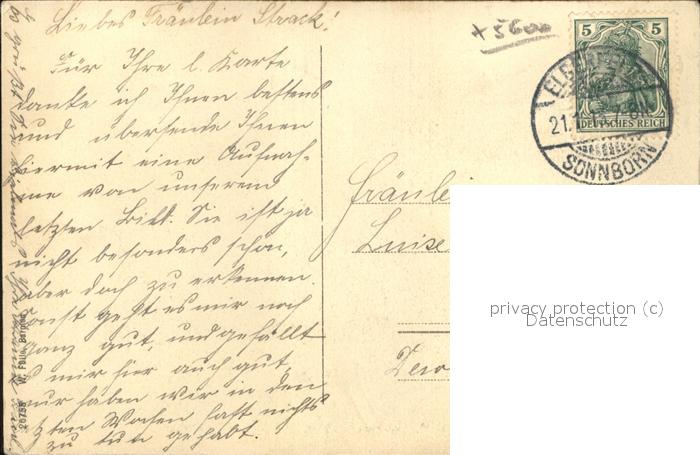 Liebes Fräulein Strack!
Für Ihre l. Karte
danke ich Ihnen bestens
und übersende Ihnen
hiermit eine Aufnah-
me von unserem
letzten Bild. Sie ist ja
nicht besonders schön,
aber doch zu erkennen.
Sonst geht es mir noch
ganz gut, und gefällt
es mir hier auch gut
nur haben wir in den
letzten Wochen fast nichts
zu tun gehabt.
Es grüßt Sie
26758
+5600
5 5
DEUTSCHES REICH
ELBERFELD
21.1
SONNBORN
Fräulein
Luise
privacy protection (c)
Datenschutz